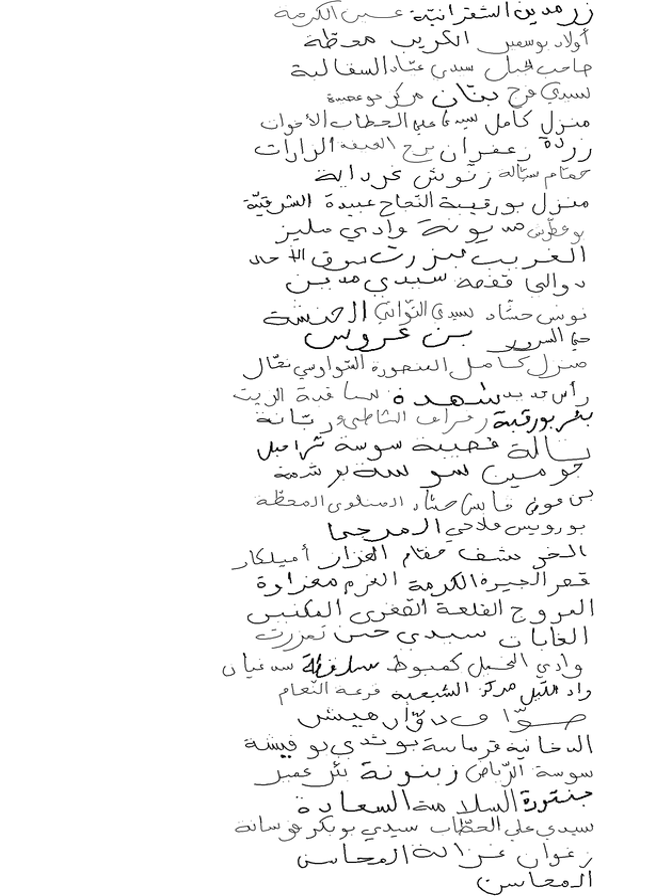 زرمدين الشقرانيّة عين الكرمة
أولاد بوسمير الكريب محطّة
صاحب الجبل سيدي عبّاد السقالبة
سيدي فرج بنّان مركز بوعصيدة
منزل كامل سيدي علي الحطاب الأخوات
زردة زعفران برج الخيفة الزارات
حمّام سيّالة زنّوش غرداية
منزل بورقيبة النجاح عبيدة الشرقيّة
بوعطّوش مديونة وادي مليز
الغريب بنزرت سوق الأحد
دوالي قفصة سيدي مدين
تونس حشّاد سيدي التوّاتي الحنشة
حي السرور بن عروس
منزل كامل المنصورة السّواوسي نعّال
رأس جديد شهدة ساقية الزيت
بئر بورقبة زفراف الشاطئ رتبانة
سالة قصيبة سوسة شراحيل
جومين سوسة بوشمة
بن عون قابس حشّاد المتلوي المحطّة
بورويس ملاحي المرجى
الخرشف حمّام الغزاز أميلكار
قصر الجيرة الكرمة القرم مغرادة
المروج القلعة الصغرى المكنين
الغابات سيدي حسن تمزرت
وادي النخيل كمبوط سليطلة سفيان
واد الليل مركز الشبيبة قرعة النّعام
صوّاف دقّاز ميش
الدخانية قرماسة بوثدي بوفيشة
سوسة الرّياض زيتونة بئر عمير
جنتورة السلامة السعادة
سيدي علي الحطّاب سيدي بوبكر فوسانة
زغوان غزالة المحاسن
المحاسن